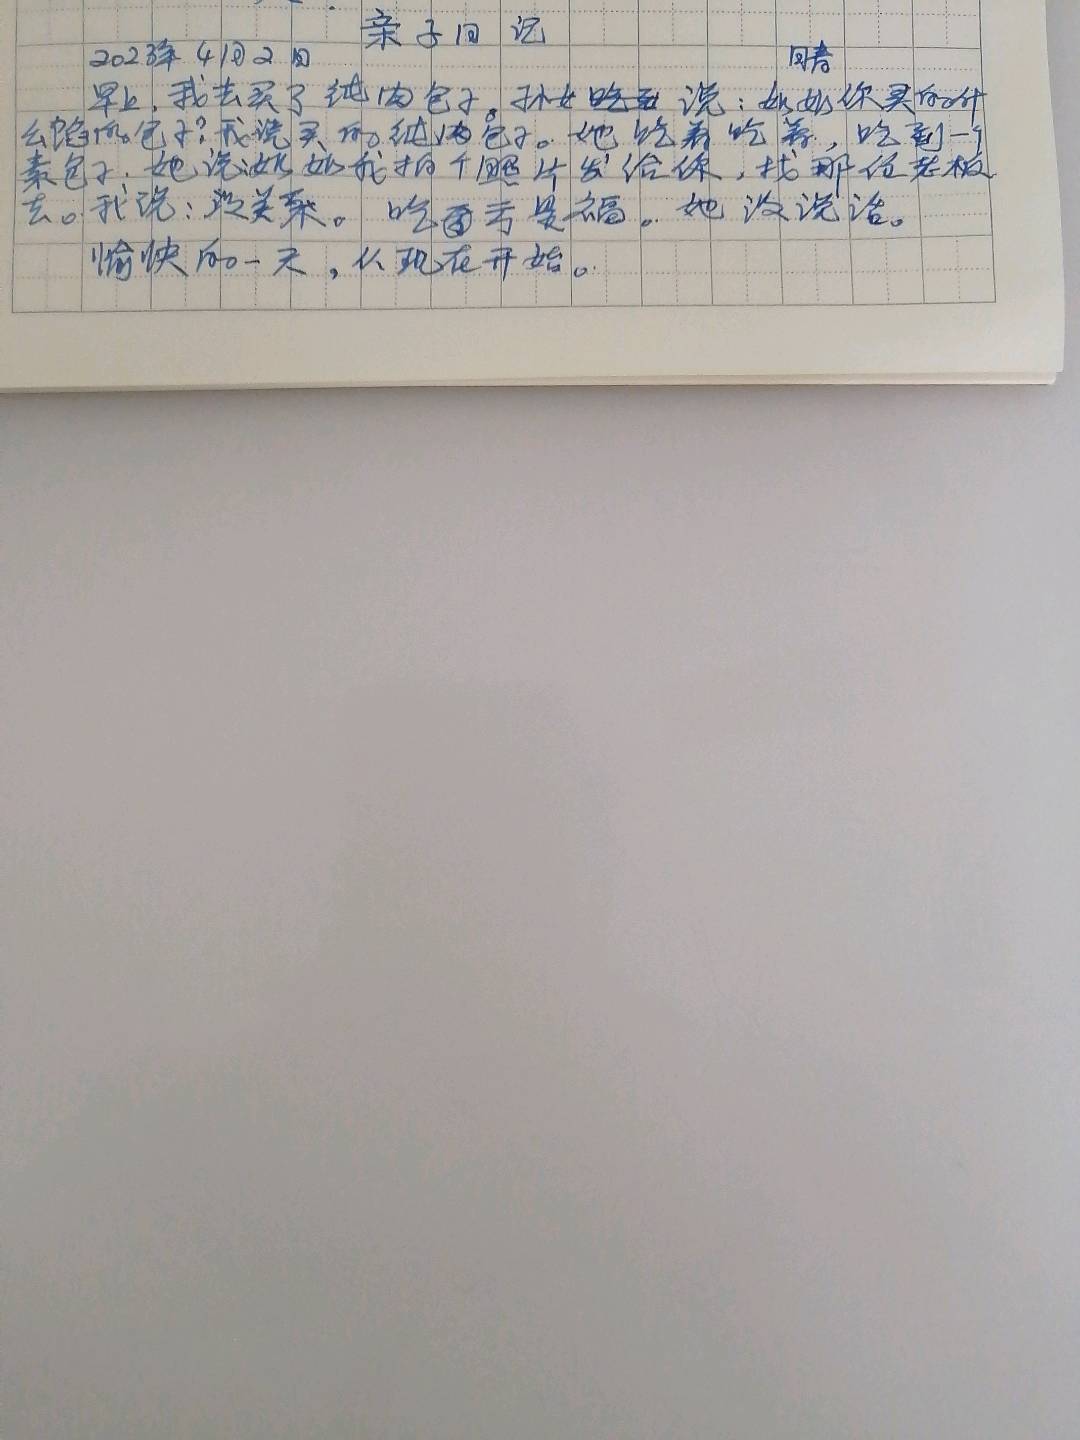 亲子日记
2023年4月2日 晴
早上,我去买了纯肉包子。孙女吃到说:奶奶你买的什
么馅的包子?我说买的纯肉包子。她吃着吃着,吃到一个
素包子,她说奶奶我拍个照片发给你,找那位老板
去。我说:没关系。吃亏是福。她没说话。
愉快的一天,从现在开始。